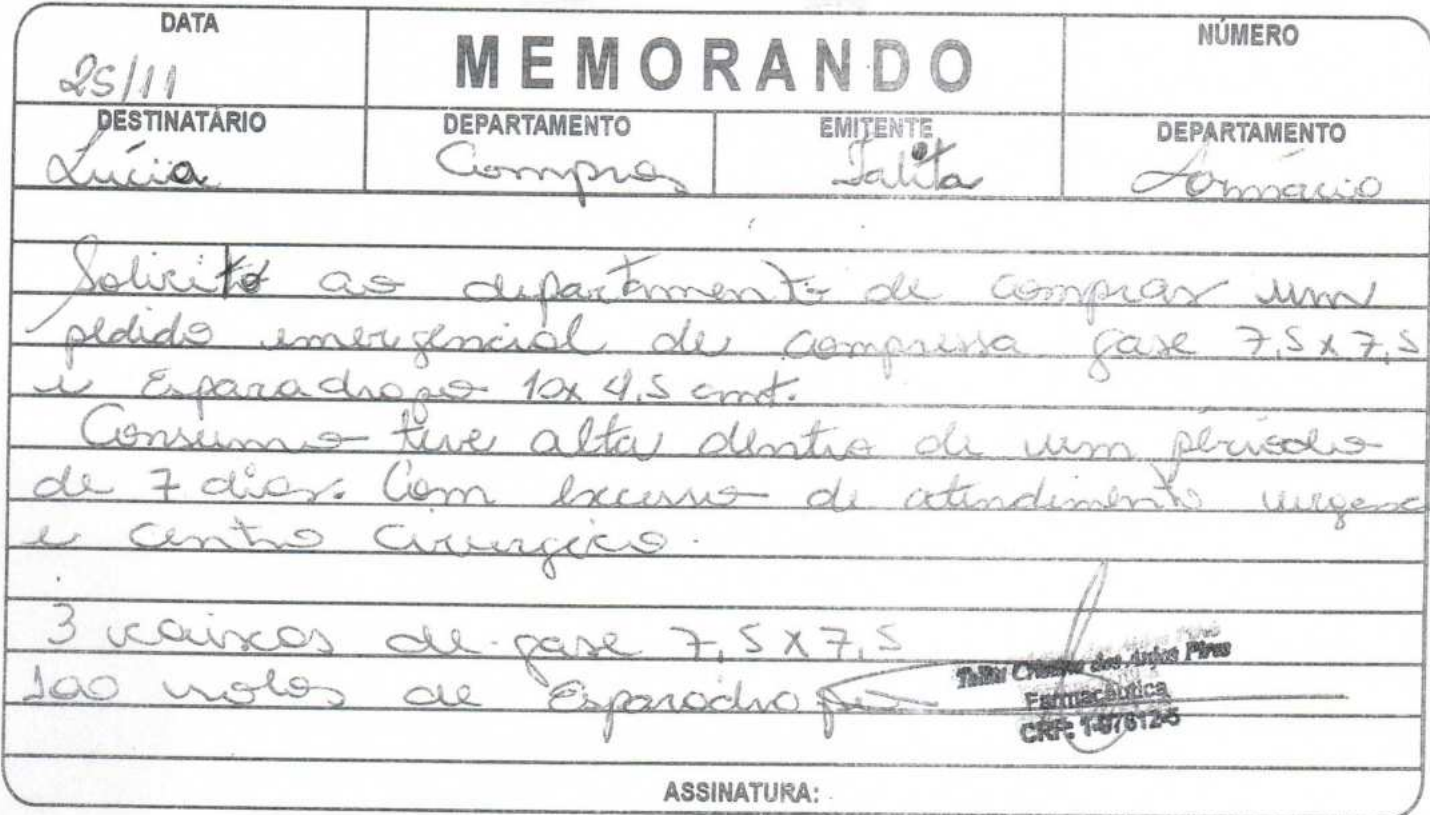 DATA
25/11
MEMORANDO
NÚMERO
DESTINATÁRIO
Lúcia
DEPARTAMENTO
Compras
EMITENTE
Talita
DEPARTAMENTO
Farmácia
Solicito ao departamento de compras um
pedido emergencial de compressa gase 7,5 x 7,5
e Esparadrapo 10x 4,5 cmt.
Consumo teve alta dentro de um período
de 7 dias. Com excesso de atendimento urgenc
e centro cirurgico.
3 caixas de gase 7,5 x 7,5
100 rolos de Esparadrapo
dos Anjos Pires
Farmacêutica
CRF: 1-97612-5
ASSINATURA: